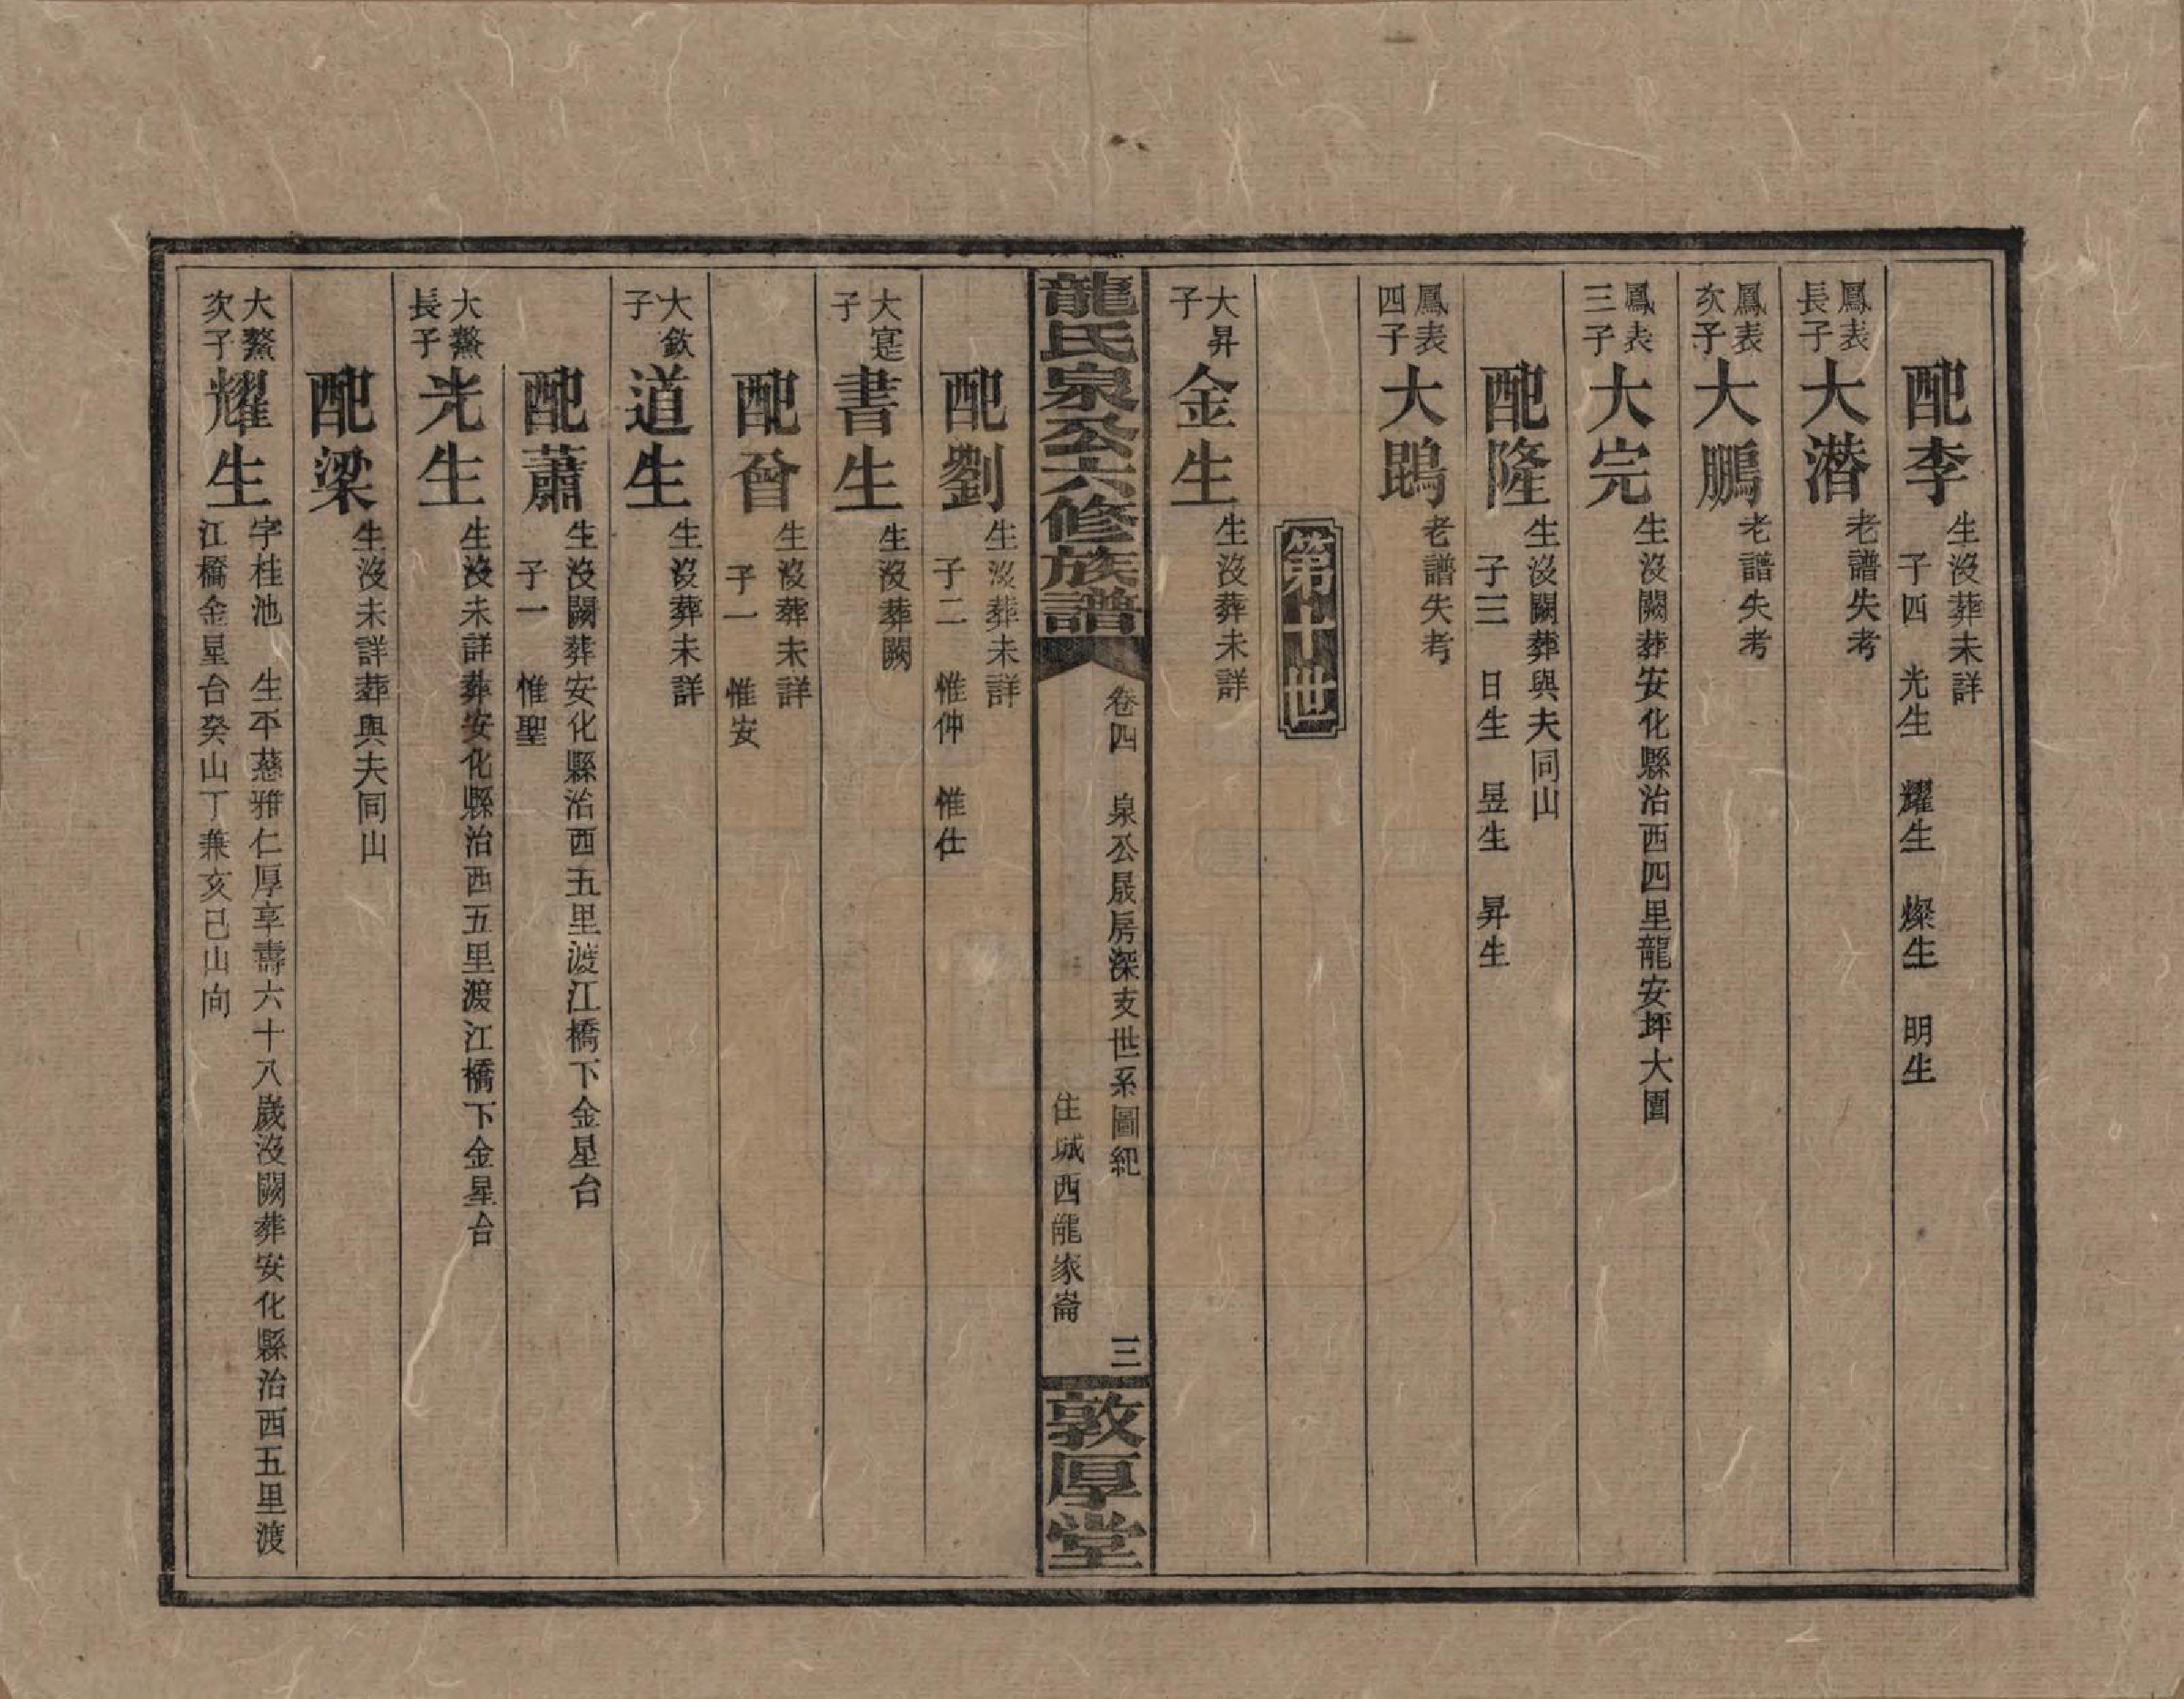 配李
生沒葬未詳
子四　光生　耀生　燦生　明生
鳳表
長子
大潛
老譜失考
鳳表
次子
大鵬
老譜失考
鳳表
三子
大完
生沒闕葬安化縣治西四里龍安坪大園
配隆
生沒闕葬與夫同山
子三　日生　昱生　昇生
鳳表
四子
大鵾
老譜失考
第十世
大昇
子
金生
生沒葬未詳
龍氏泉公六修族譜
卷四　泉公晟房深支世系圖紀
住城西龍家崙
三
敦厚堂
配劉
生沒葬未詳
子二　惟仲　惟仕
大寔
子
書生
生沒葬闕
配曾
生沒葬未詳
子一　惟安
大欽
子
道生
生沒葬未詳
配蕭
生沒闕葬安化縣治西五里渡江橋下金星台
子一　惟聖
大鰲
長子
光生
生沒未詳葬安化縣治西五里渡江橋下金星台
配梁
生沒未詳葬與夫同山
大鰲
次子
耀生
字桂池　生平慈雅仁厚享壽六十八歲沒闕葬安化縣治西五里渡
江橋金星台癸山丁兼亥巳山向